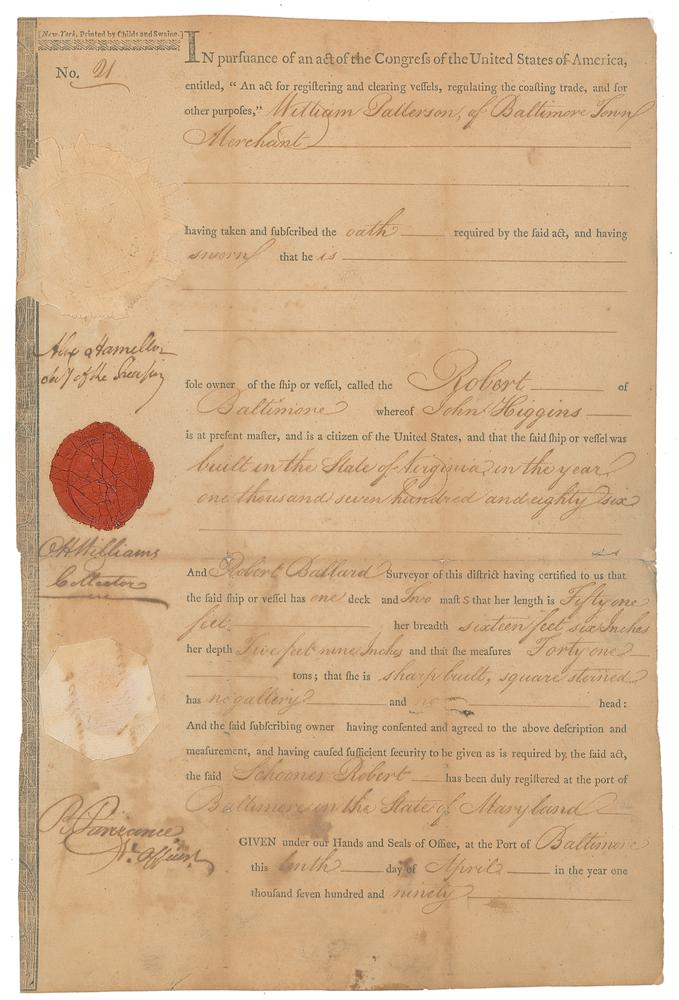 [New-York, Printed by Childs and Swaine.]
No. 21
IN pursuance of an act of the Congreſs of the United States of America,
entitled, “ An act for registering and clearing veſſels, regulating the coaſting trade, and for
other purpoſes,” William Patterson, of Baltimore Town
Merchant
having taken and ſubſcribed the oath required by the ſaid act, and having
sworn that he is
ſole owner of the ſhip or veſſel, called the Robert of
Baltimore whereof John Higgins
is at preſent maſter, and is a citizen of the United States, and that the ſaid ſhip or veſſel was
built in the State of Virginia in the year
one thousand seven hundred and eighty six
And Robert Ballard Surveyor of this diſtrict having certified to us that
the ſaid ſhip or veſſel has one deck and Two maſts that her length is Fifty one
feet her breadth sixteen feet six Inches
her depth Five feet nine Inches and that ſhe meaſures Forty one
tons; that ſhe is sharp built, square sterned
has no gallery and no head:
And the ſaid ſubſcribing owner having conſented and agreed to the above deſcription and
meaſurement, and having cauſed ſufficient ſecurity to be given as is required by the ſaid act,
the ſaid Schooner Robert has been duly regiſtered at the port of
Baltimore in the State of Maryland
GIVEN under our Hands and Seals of Office, at the Port of Baltimore
this tenth day of April in the year one
thouſand ſeven hundred and ninety
Alex Hamilton
of the Treasury
O H Williams
Collector
R Purviance
N. Officer